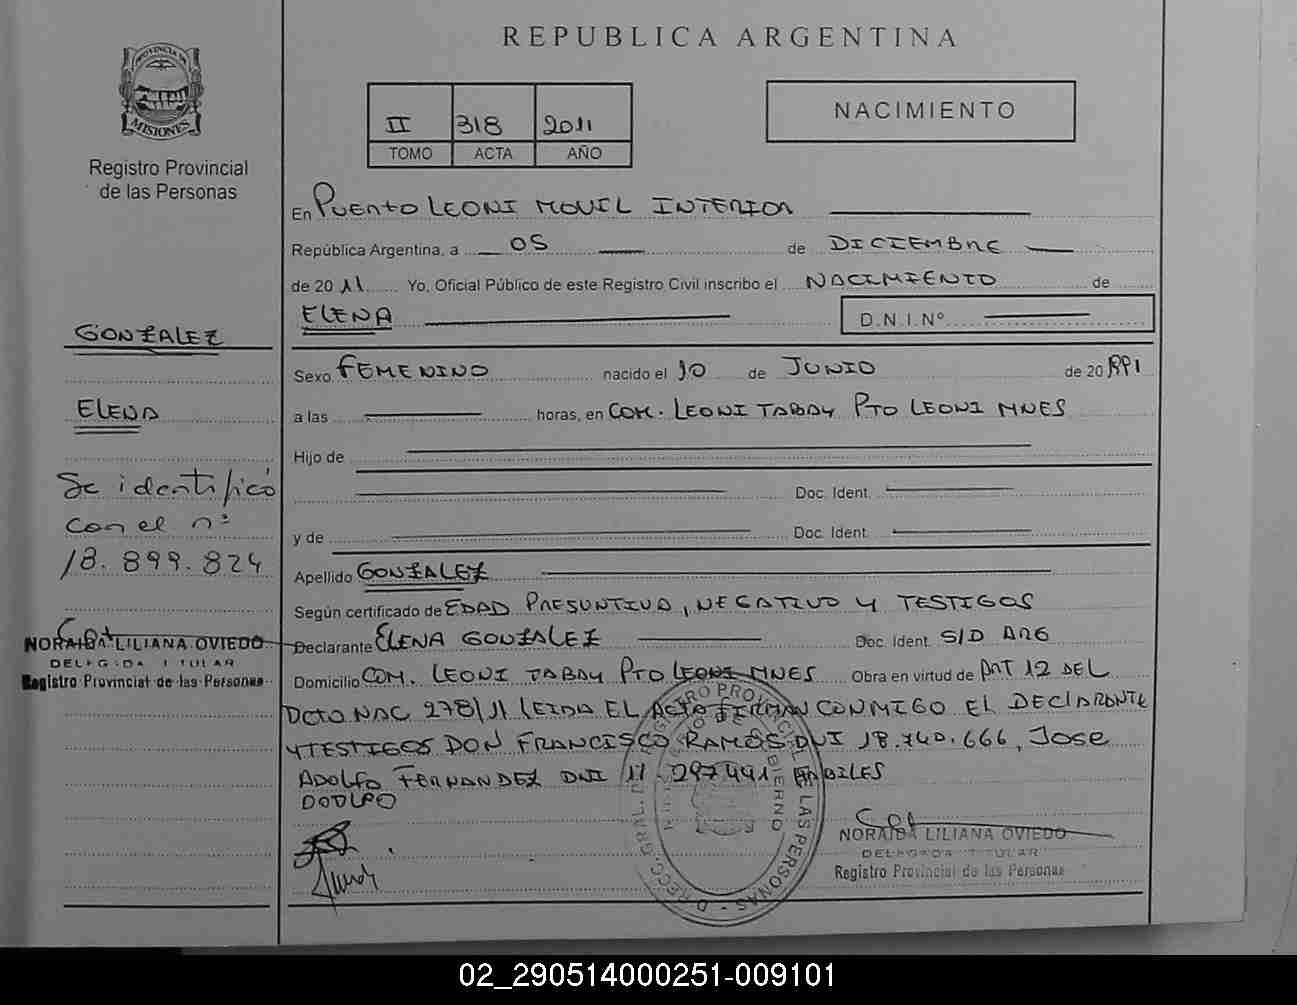 REPUBLICA ARGENTINA
PROVINCIA DE
MISIONES
Registro Provincial
de las Personas
II 318 2011
TOMO ACTA AÑO
NACIMIENTO
En PUERTO LEONI MOVIL INTERIOR
República Argentina, a 05 de DICIEMBRE
de 2011 Yo, Oficial Público de este Registro Civil inscribo el NACIMIENTO de
ELENA D.N.I.Nº
GONZALEZ
ELENA
Se identificó
con el nº
18.899.824
NORAIDA LILIANA OVIEDO
DELEGADA TITULAR
Registro Provincial de las Personas
Sexo FEMENINO nacido el 10 de JUNIO de 20 1991
a las horas, en COM. LEONI TABAY PTO LEONI MNES
Hijo de
Doc. Ident.
y de Doc. Ident.
Apellido GONZALEZ
Según certificado de EDAD PRESUNTIVA, NEGATIVO Y TESTIGOS
Declarante ELENA GONZALEZ Doc. Ident. S/D ARG
Domicilio COM. LEONI TABAY PTO LEONI MNES Obra en virtud de ART 12 DEL
DCTO NAC 278/11 LEIDA EL ACTA FIRMAN CONMIGO EL DECLARANTE
Y TESTIGOS DON FRANCISCO RAMOS DNI 18.740.666, JOSE
ADOLFO FERNANDEZ DNI 11 297491 HABILES
DODLFO
NORAIDA LILIANA OVIEDO
DELEGADA TITULAR
Registro Provincial de las Personas
02_290514000251-009101